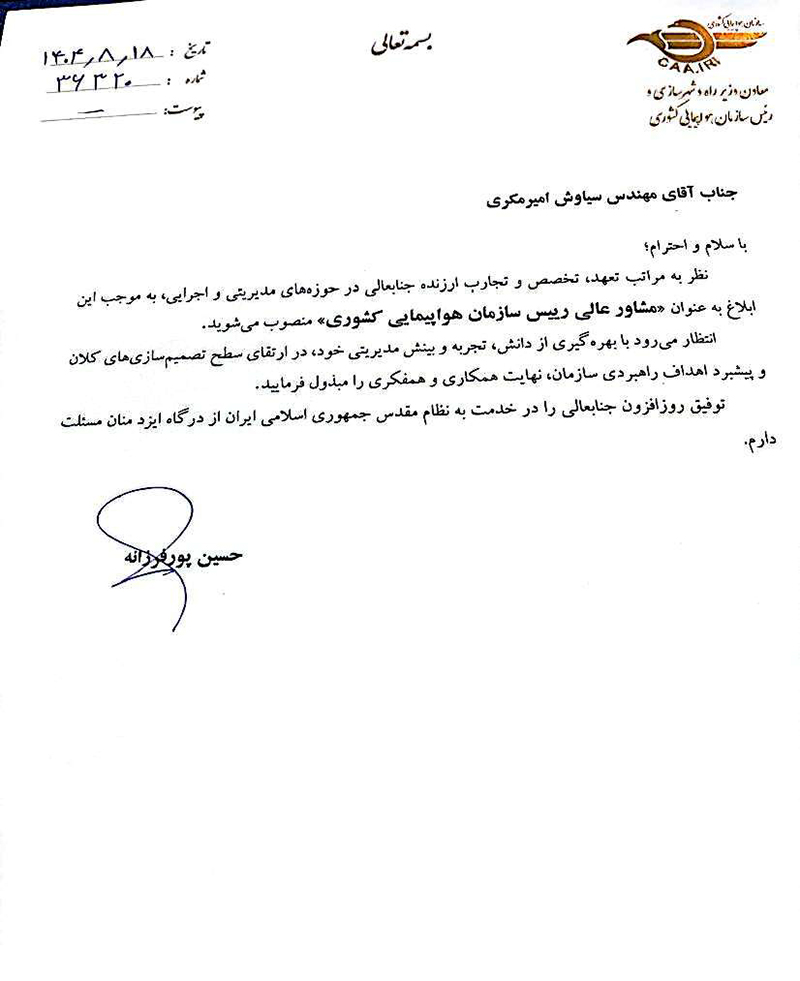 بسمه تعالی
سازمان هواپیمایی کشوری
CAA.IRI
معاون وزیر راه و شهرسازی و
رئیس سازمان هواپیمایی کشوری
تاریخ : ۱۴۰۴٫۸٫۱۸
شماره : ۳۶۳۲۰
پیوست: —
جناب آقای مهندس سیاوش امیرمکری
با سلام و احترام؛
نظر به مراتب تعهد، تخصص و تجارب ارزنده جنابعالی در حوزه‌های مدیریتی و اجرایی، به موجب این
ابلاغ به عنوان «مشاور عالی رییس سازمان هواپیمایی کشوری» منصوب می‌شوید.
انتظار می‌رود با بهره‌گیری از دانش، تجربه و بینش مدیریتی خود، در ارتقای سطح تصمیم‌سازی‌های کلان
و پیشبرد اهداف راهبردی سازمان، نهایت همکاری و همفکری را مبذول فرمایید.
توفیق روزافزون جنابعالی را در خدمت به نظام مقدس جمهوری اسلامی ایران از درگاه ایزد منان مسئلت
دارم.
حسین پورفرزانه